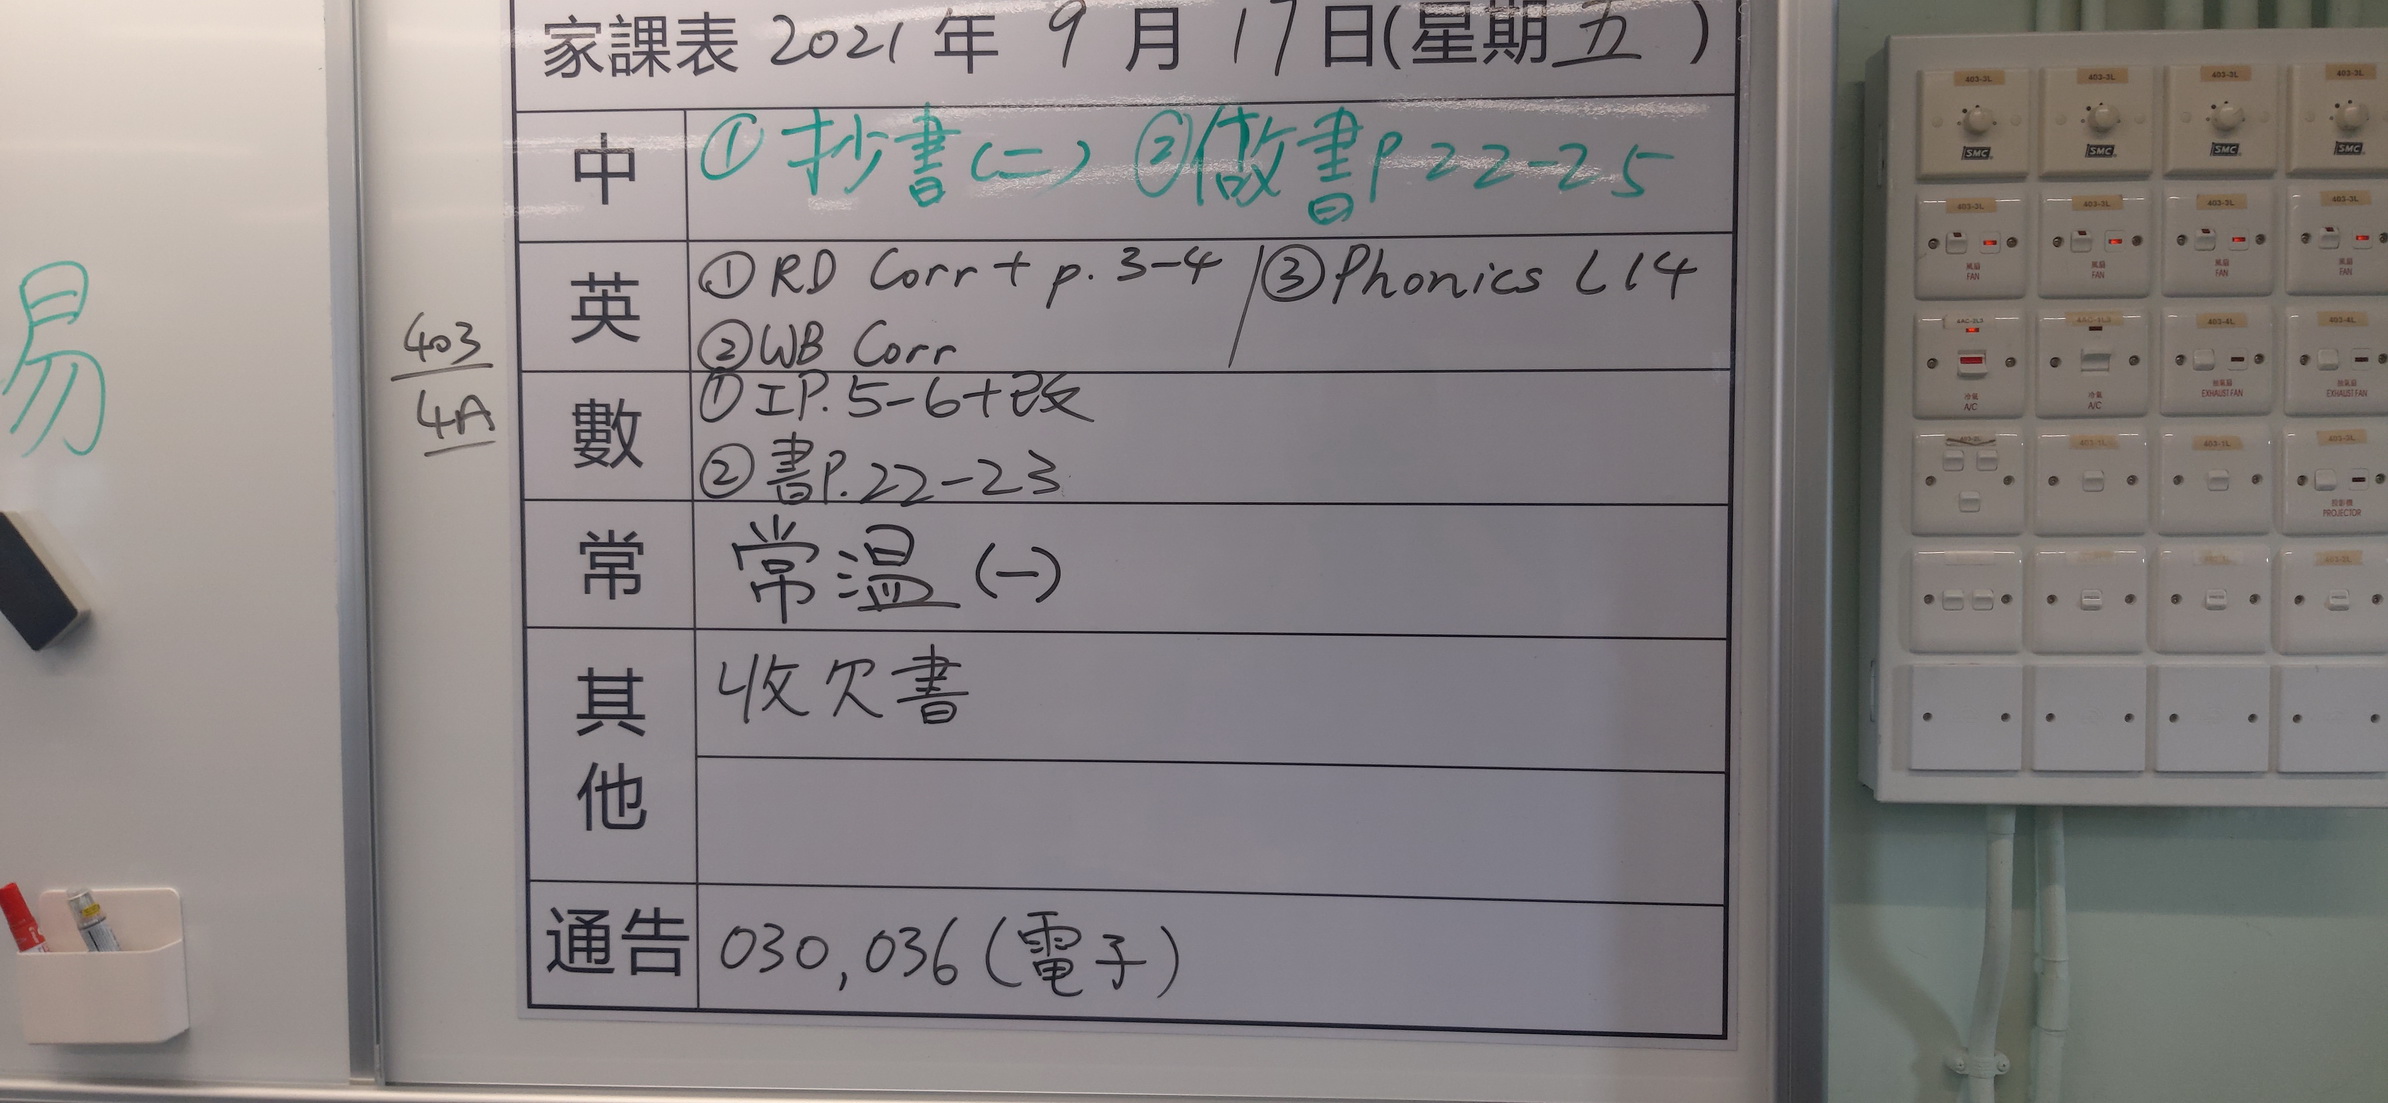 家課表 2021 年 9 月 17 日(星期五)
中 ①抄書(二) ②做書P22-25
英 ①RD Corr + p. 3-4 / ③Phonics L14
②WB Corr
數 ①工P.5-6+改
②書P.22-23
常 常温(一)
其他 收欠書
通告 030,036(電子)
易
403
4A
403-3L 403-3L 403-3L 403-3L
SMC SMC SMC SMC
403-3L 403-3L 403-3L 403-3L
風扇 風扇 風扇 風扇
FAN FAN FAN FAN
403-4L 403-4L
冷氣 冷氣 抽氣扇 抽氣扇
A/C A/C EXHAUST FAN EXHAUST FAN
403-1L 403-1L
投影機
PROJECTOR